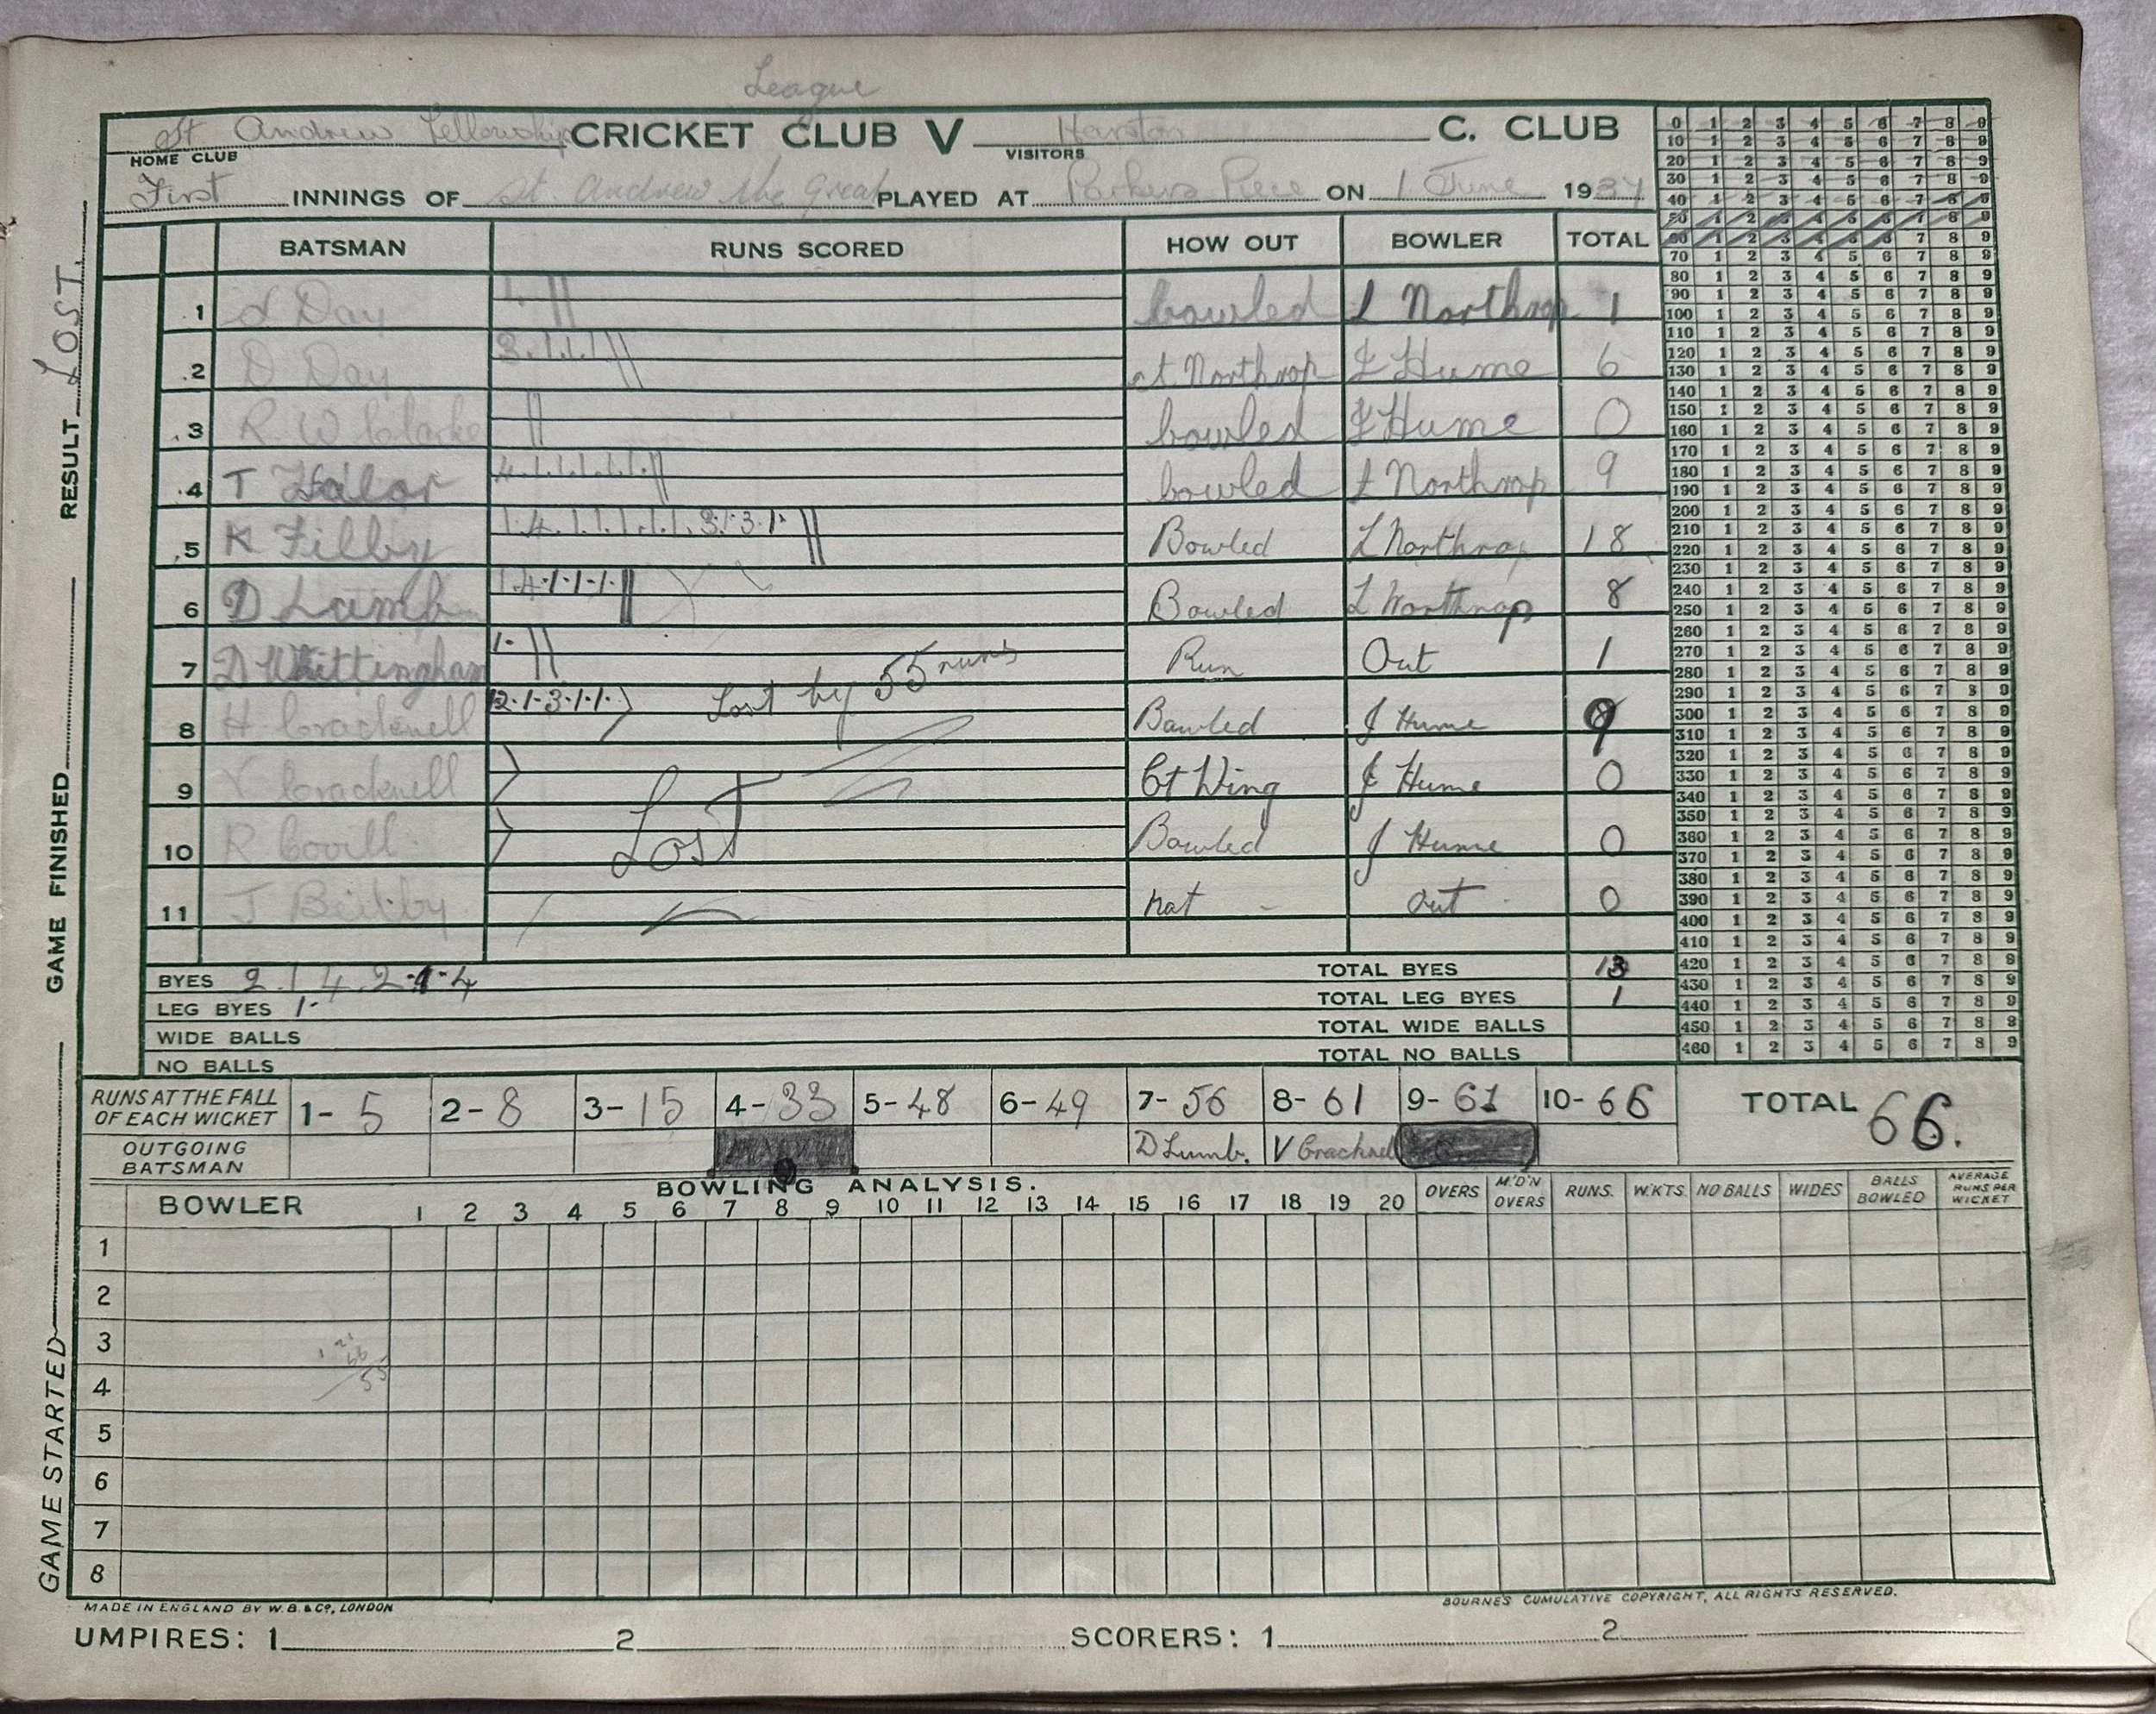 League
St Andrew Fellowship CRICKET CLUB V Harston C. CLUB
HOME CLUB VISITORS
First INNINGS OF St. Andrew the Great PLAYED AT Parkers Piece ON 1 June 1937
BATSMAN RUNS SCORED HOW OUT BOWLER TOTAL
1 Day 1. bowled L Northrop 1
2 D Day 3.1.1.1 ct. Northrop J Hume 6
3 R W Clarke bowled J Hume 0
4 T bowled L Northrop 9
5 K Filby 1.4.1.1.1.1.1.1.3.1.3.1. Bowled L Northrop 18
6 D Lumb 1.4.1.1.1. Bowled L Northrop 8
7 D Whittingham 1. Run Out 1
8 H Cracknell 2.1.3.1.1. Lost by 55 runs Bowled J Hume 9
9 V Cracknell Ct Wing J Hume 0
10 R Covill Lost Bowled J Hume 0
11 J Beilby not - out 0
BYES 2.1.4.2.4 TOTAL BYES 13
LEG BYES 1. TOTAL LEG BYES 1
WIDE BALLS TOTAL WIDE BALLS
NO BALLS TOTAL NO BALLS
RUNS AT THE FALL OF EACH WICKET 1- 5 2- 8 3- 15 4- 33 5- 48 6- 49 7- 56 8- 61 9- 61 10- 66 TOTAL 66.
OUTGOING BATSMAN D Lumb. V Cracknell
BOWLING ANALYSIS.
BOWLER 1 2 3 4 5 6 7 8 9 10 11 12 13 14 15 16 17 18 19 20 OVERS M'D'N OVERS RUNS. W'KTS. NO BALLS WIDES BALLS BOWLED AVERAGE RUNS PER WICKET
1
2
3
4
5
6
7
8
66
55
MADE IN ENGLAND BY W.B. & CO, LONDON
BOURNE'S CUMULATIVE COPYRIGHT, ALL RIGHTS RESERVED.
UMPIRES: 1 2 SCORERS: 1 2
GAME STARTED GAME FINISHED RESULT LOST.
0 1 2 3 4 5 6 7 8 9
10 1 2 3 4 5 6 7 8 9
20 1 2 3 4 5 6 7 8 9
30 1 2 3 4 5 6 7 8 9
40 1 2 3 4 5 6 7 8 9
50 1 2 3 4 5 6 7 8 9
60 1 2 3 4 5 6 7 8 9
70 1 2 3 4 5 6 7 8 9
80 1 2 3 4 5 6 7 8 9
90 1 2 3 4 5 6 7 8 9
100 1 2 3 4 5 6 7 8 9
110 1 2 3 4 5 6 7 8 9
120 1 2 3 4 5 6 7 8 9
130 1 2 3 4 5 6 7 8 9
140 1 2 3 4 5 6 7 8 9
150 1 2 3 4 5 6 7 8 9
160 1 2 3 4 5 6 7 8 9
170 1 2 3 4 5 6 7 8 9
180 1 2 3 4 5 6 7 8 9
190 1 2 3 4 5 6 7 8 9
200 1 2 3 4 5 6 7 8 9
210 1 2 3 4 5 6 7 8 9
220 1 2 3 4 5 6 7 8 9
230 1 2 3 4 5 6 7 8 9
240 1 2 3 4 5 6 7 8 9
250 1 2 3 4 5 6 7 8 9
260 1 2 3 4 5 6 7 8 9
270 1 2 3 4 5 6 7 8 9
280 1 2 3 4 5 6 7 8 9
290 1 2 3 4 5 6 7 8 9
300 1 2 3 4 5 6 7 8 9
310 1 2 3 4 5 6 7 8 9
320 1 2 3 4 5 6 7 8 9
330 1 2 3 4 5 6 7 8 9
340 1 2 3 4 5 6 7 8 9
350 1 2 3 4 5 6 7 8 9
360 1 2 3 4 5 6 7 8 9
370 1 2 3 4 5 6 7 8 9
380 1 2 3 4 5 6 7 8 9
390 1 2 3 4 5 6 7 8 9
400 1 2 3 4 5 6 7 8 9
410 1 2 3 4 5 6 7 8 9
420 1 2 3 4 5 6 7 8 9
430 1 2 3 4 5 6 7 8 9
440 1 2 3 4 5 6 7 8 9
450 1 2 3 4 5 6 7 8 9
460 1 2 3 4 5 6 7 8 9